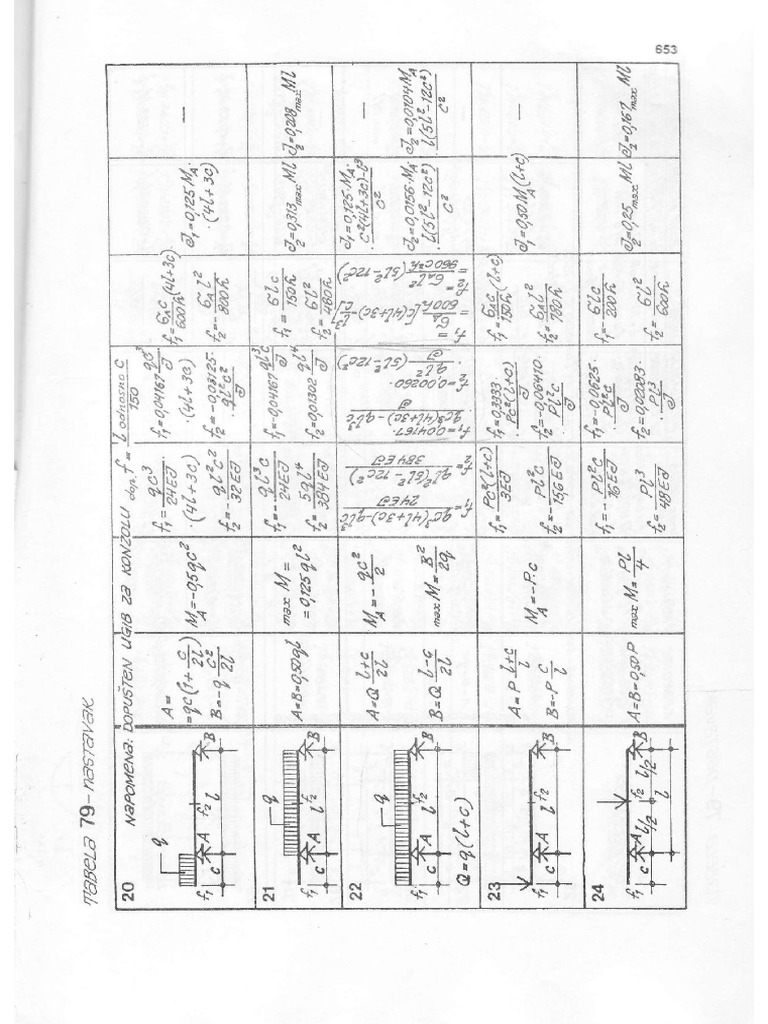 653
Tabela 79-nastavak
NAPOMENA: DOPUŠTEN UGIB ZA KONZOLU dop. f = l odnosno c / 150
20
q
f₁ c A l f₂ B
A=
=qc(1+ c/2l)
B=-q c²/2l
M_A=-0,5qc²
f₁= qc³/24EJ
·(4l+3c)
f₂=- ql²c²/32EJ
f₁=0,04167 qc³/J
·(4l+3c)
f₂=-0,03125·
· ql²c²/J
f₁= σ_A c/600h (4l+3c)
f₂=- σ_A l²/800h
J₁=0,125 M_A·
·(4l+3c)
—
21
q
f₁ c A l f₂ B
A=B=0,50ql
max M=
=0,125ql²
f₁=- ql³c/24EJ
f₂= 5ql⁴/384EJ
f₁=-0,04167 ql³c/J
f₂=0,01302 ql⁴/J
f₁= σlc/150h
f₂= σl²/480h
J₂=0,313 max Ml
J₂=0,208 max Ml
22
q
f₁ c A l f₂ B
Q=q(l+c)
A=Q l+c/2l
B=Q l-c/2l
M_A=- qc²/2
max M= B²/2q
f₁= qc³(4l+3c)-ql³c/24EJ
f₂= ql²(5l²-12c²)/384EJ
f₁=0,04167·
· qc³(4l+3c)-ql³c/J
f₂=0,00260·
· ql²/J (5l²-12c²)
f₁=
= σ_A/600h [c(4l+3c)- l³/c]
f₂=
= σ_A l²/960c²h (5l²-12c²)
J₁=0,125·M_A·
· c²(4l+3c)-l³/c²
J₂=0,0156·M_A·
· l(5l²-12c²)/c²
—
J₂=0,0104 M_A
· l(5l²-12c²)/c²
23
f₁ c A l f₂ B
A=P l+c/l
B=-P c/l
M_A=-P.c
f₁= Pc²(l+c)/3EJ
f₂=- Pl²c/15,6EJ
f₁=0,3333
· Pc²(l+c)/J
f₂=-0,06410·
· Pl²c/J
f₁= σ_A c/150h (l+c)
f₂= σ_A l²/780h
J₁=0,50 M_A(l+c)
—
24
f₁ c A l/2 f₂ l/2 B
l
A=B=0,50P
max M= Pl/4
f₁=- Pl²c/16EJ
f₂= Pl³/48EJ
f₁=-0,0625·
· Pl²c/J
f₂=0,02083·
· Pl³/J
f₁= σlc/200h
f₂= σl²/600h
J₂=0,25 max Ml
J₂=0,167 max Ml